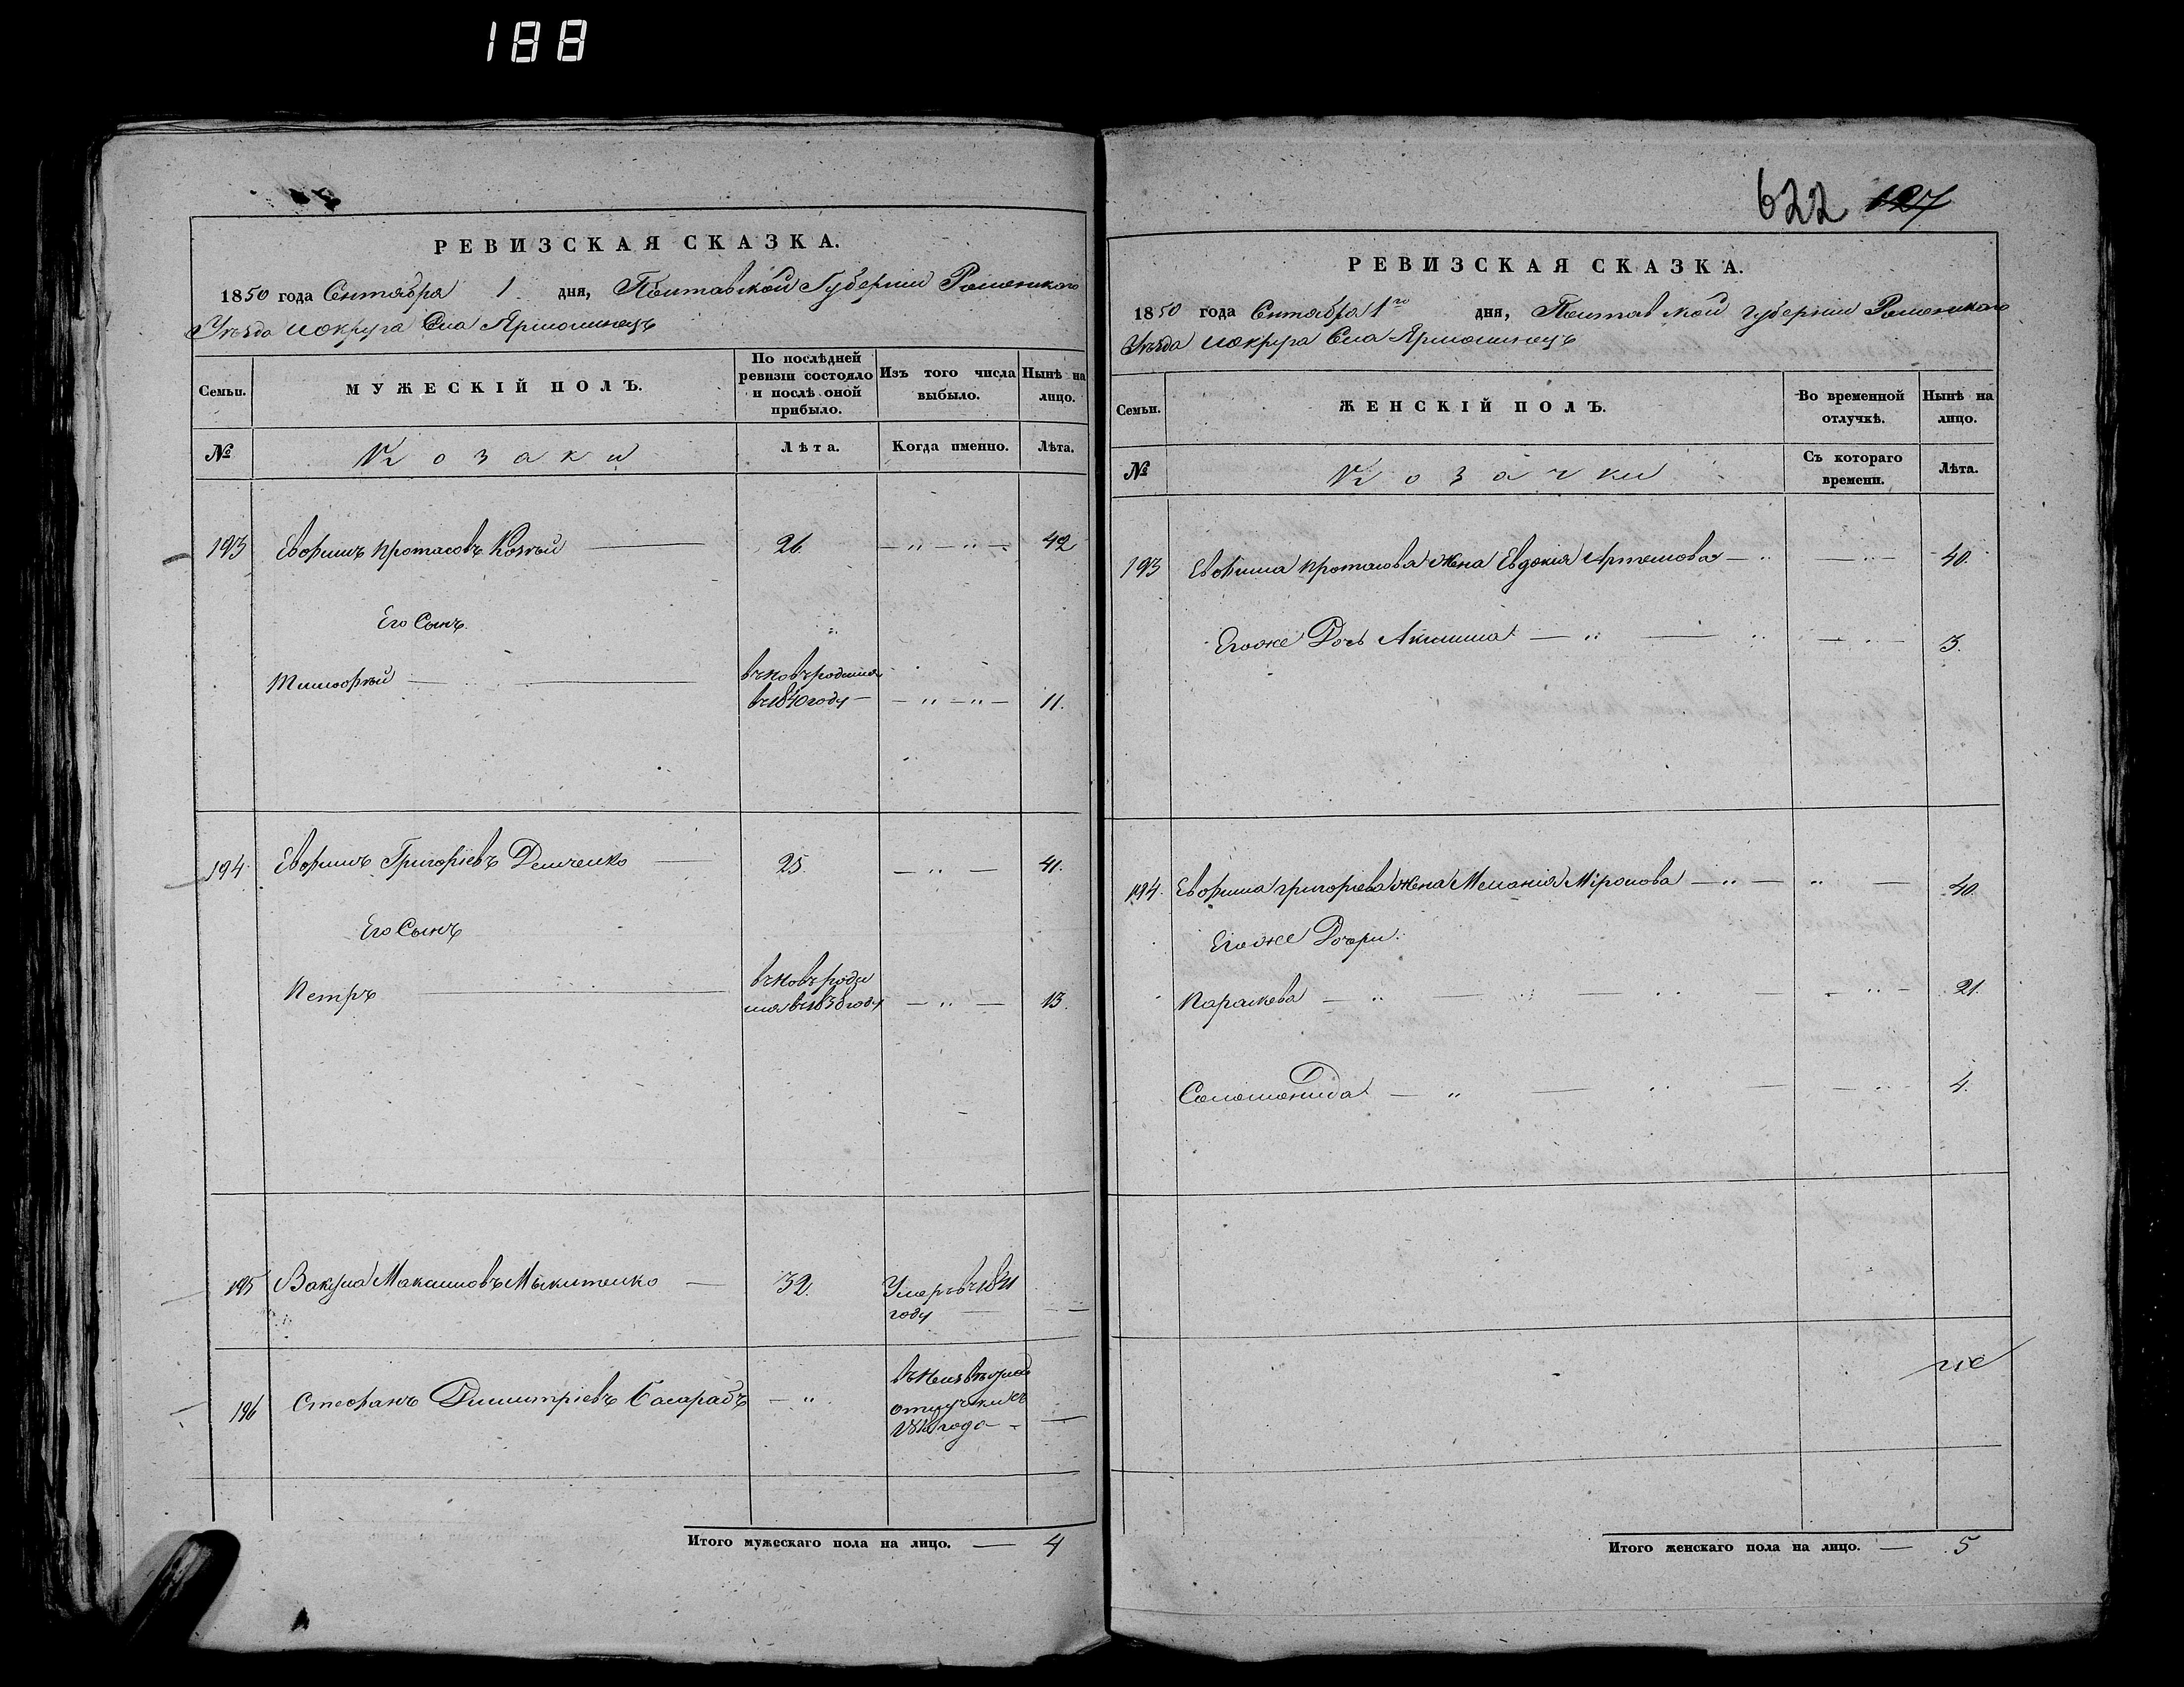 188
РЕВИЗСКАЯ СКАЗКА.
1850 года Сентября 1 дня, Полтавской Губерніи Роменскаго
Уѣзда и округа Села Ярмолинець
Семьи.
МУЖЕСКІЙ ПОЛЪ.
По послѣдней ревизіи состояло и послѣ оной прибыло.
Изъ того числа выбыло.
Нынѣ на лицо.
№
Козаки
Лѣта.
Когда именно.
Лѣта.
193 Евфимъ Протасовъ 26 42
Его Сынъ
Тимофѣй въ 1840 году 11.
194 Евфимъ Григоріевъ Демченко 25. 41.
Его Сынъ
Петръ 13.
195 Вакула Максимовъ Мыкитенко 32. Умеръ въ 1841
году
196 Стефанъ Димитріевъ
года
Итого мужескаго пола на лицо. 4
622 127
РЕВИЗСКАЯ СКАЗКА.
1850 года Сентября 1го дня, Полтавской губерніи Роменскаго
Уѣзда и округа Села Ярмолинець
Семьи.
ЖЕНСКІЙ ПОЛЪ.
Во временной отлучкѣ.
Нынѣ на лицо.
№
Козачки
Съ котораго времени.
Лѣта.
193 Евфима Протасова жена Евдокія Артемова 40.
Егоже Дочь Акилина 3.
194. Евфима Григоріева жена Меланія Міронова 40.
Егоже Дочери:
Параскева 21.
Соломонида 4.
Итого женскаго пола на лицо. 5